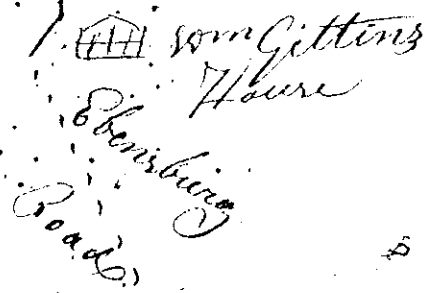 som Gittins
House
Ebensburg
Road